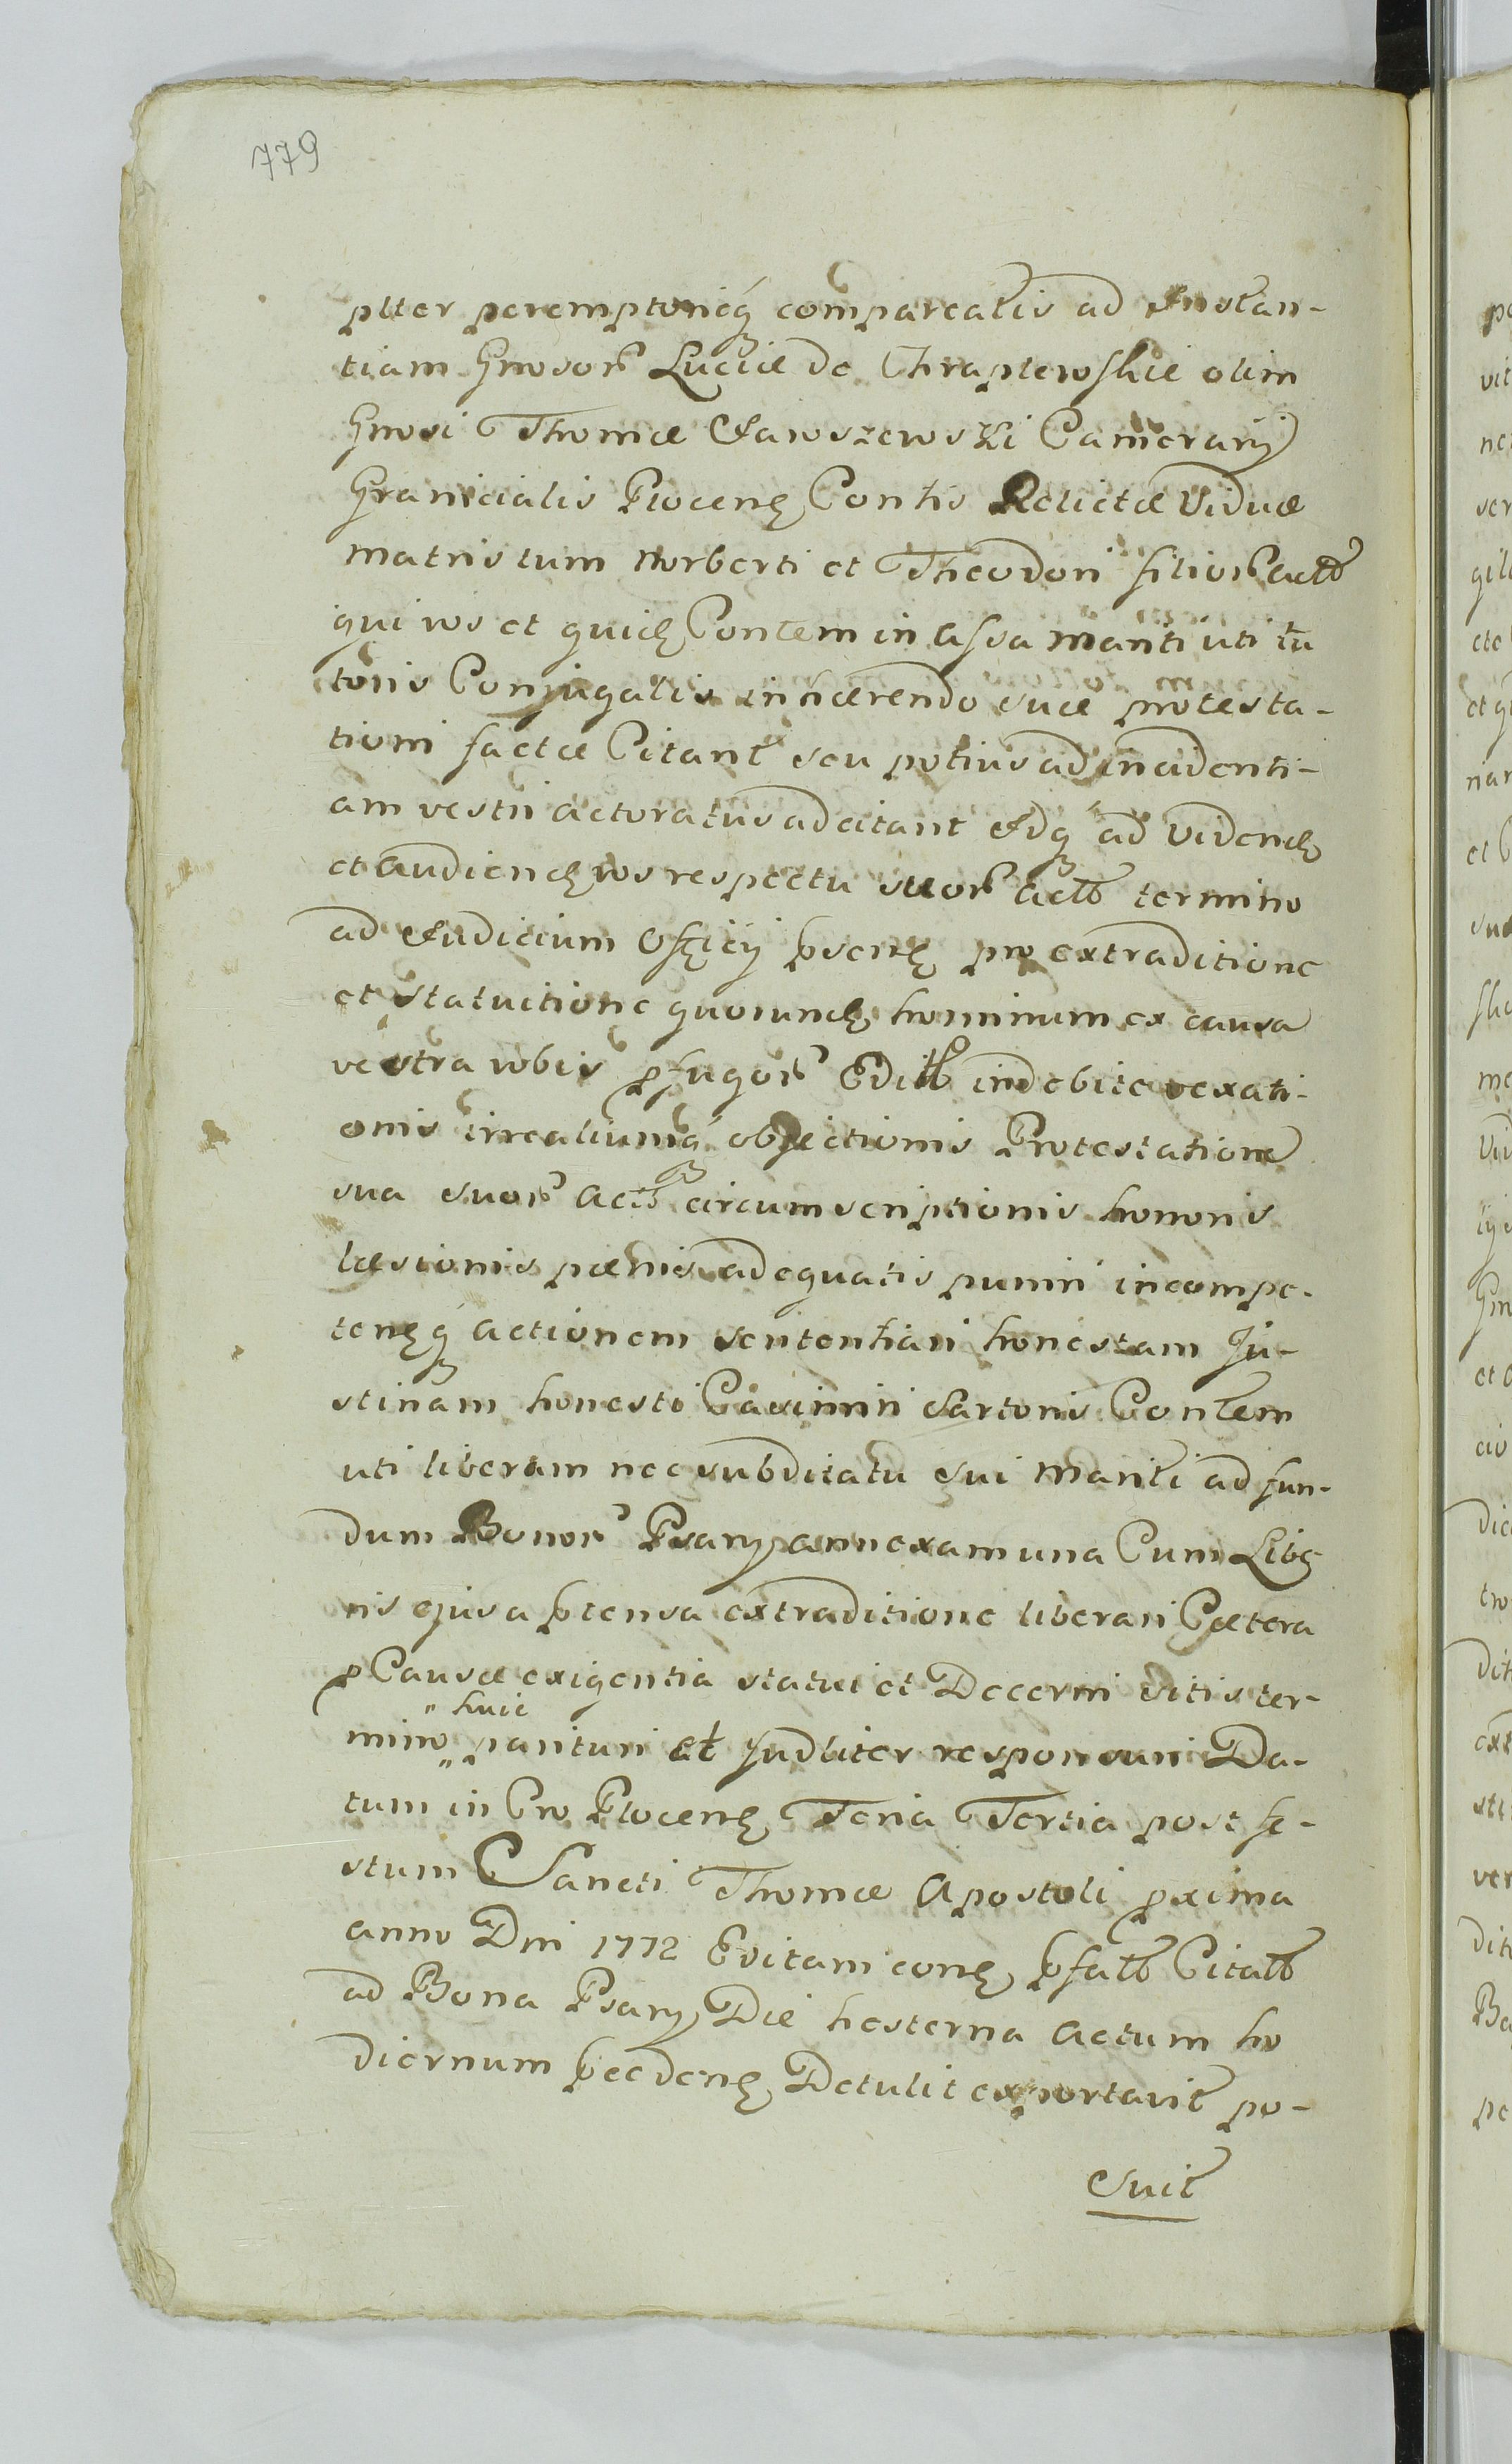 779
plter peremptorieq compareatis ad Instan-
tiam Gnosor Luciæ de Chraplewskie olim
Gnosi Thomæ Jawszewski Camerarij
Granicialis Plocens Contis Relictæ Viduæ
matris tum Norberti et Theodori filior actb
qui vos et quids Contem in assa Manti uti tu
toris Conjugalis inhærendo suæ protesta-
tioni factæ Citant seu potius ad incidenti-
am vestri actoratus adcitant Idq ad Vidends
et Audiends vos respectu suor actb termino
ad Judicium Officij psens pro extraditione
et statuitione quorunds hominum ex causa
vestra vobis pfugor Editb indebite vexati-
onis irrealiumq objectionis Protestatione
sua suor Actb circumscriptionis honoris
læsionis pænis adequatis puniri incompe-
tensq actionem sententiari honestam Ju-
stinam honesti Casimiri Sartoris Contem
uti liberam nec subditatu sui Mariti ad fun-
dum Bonor Psary annexam una Cum Libe
ris ejus a ptensa extraditione liberari Cætera
p Causæ exigentia statui et Decerni sitis ter-
huic
mino parituri et Judliter responsuri Da-
tum in Cro Plocens Feria Tertia post fe-
stum Sancti Thomæ Apostoli pxima
anno Dni 1772 Evitam cons pfatb Citatb
ad Bona Psary Die hesterna Actum ho
diernum pcedens Detulit exportavit po-
suit